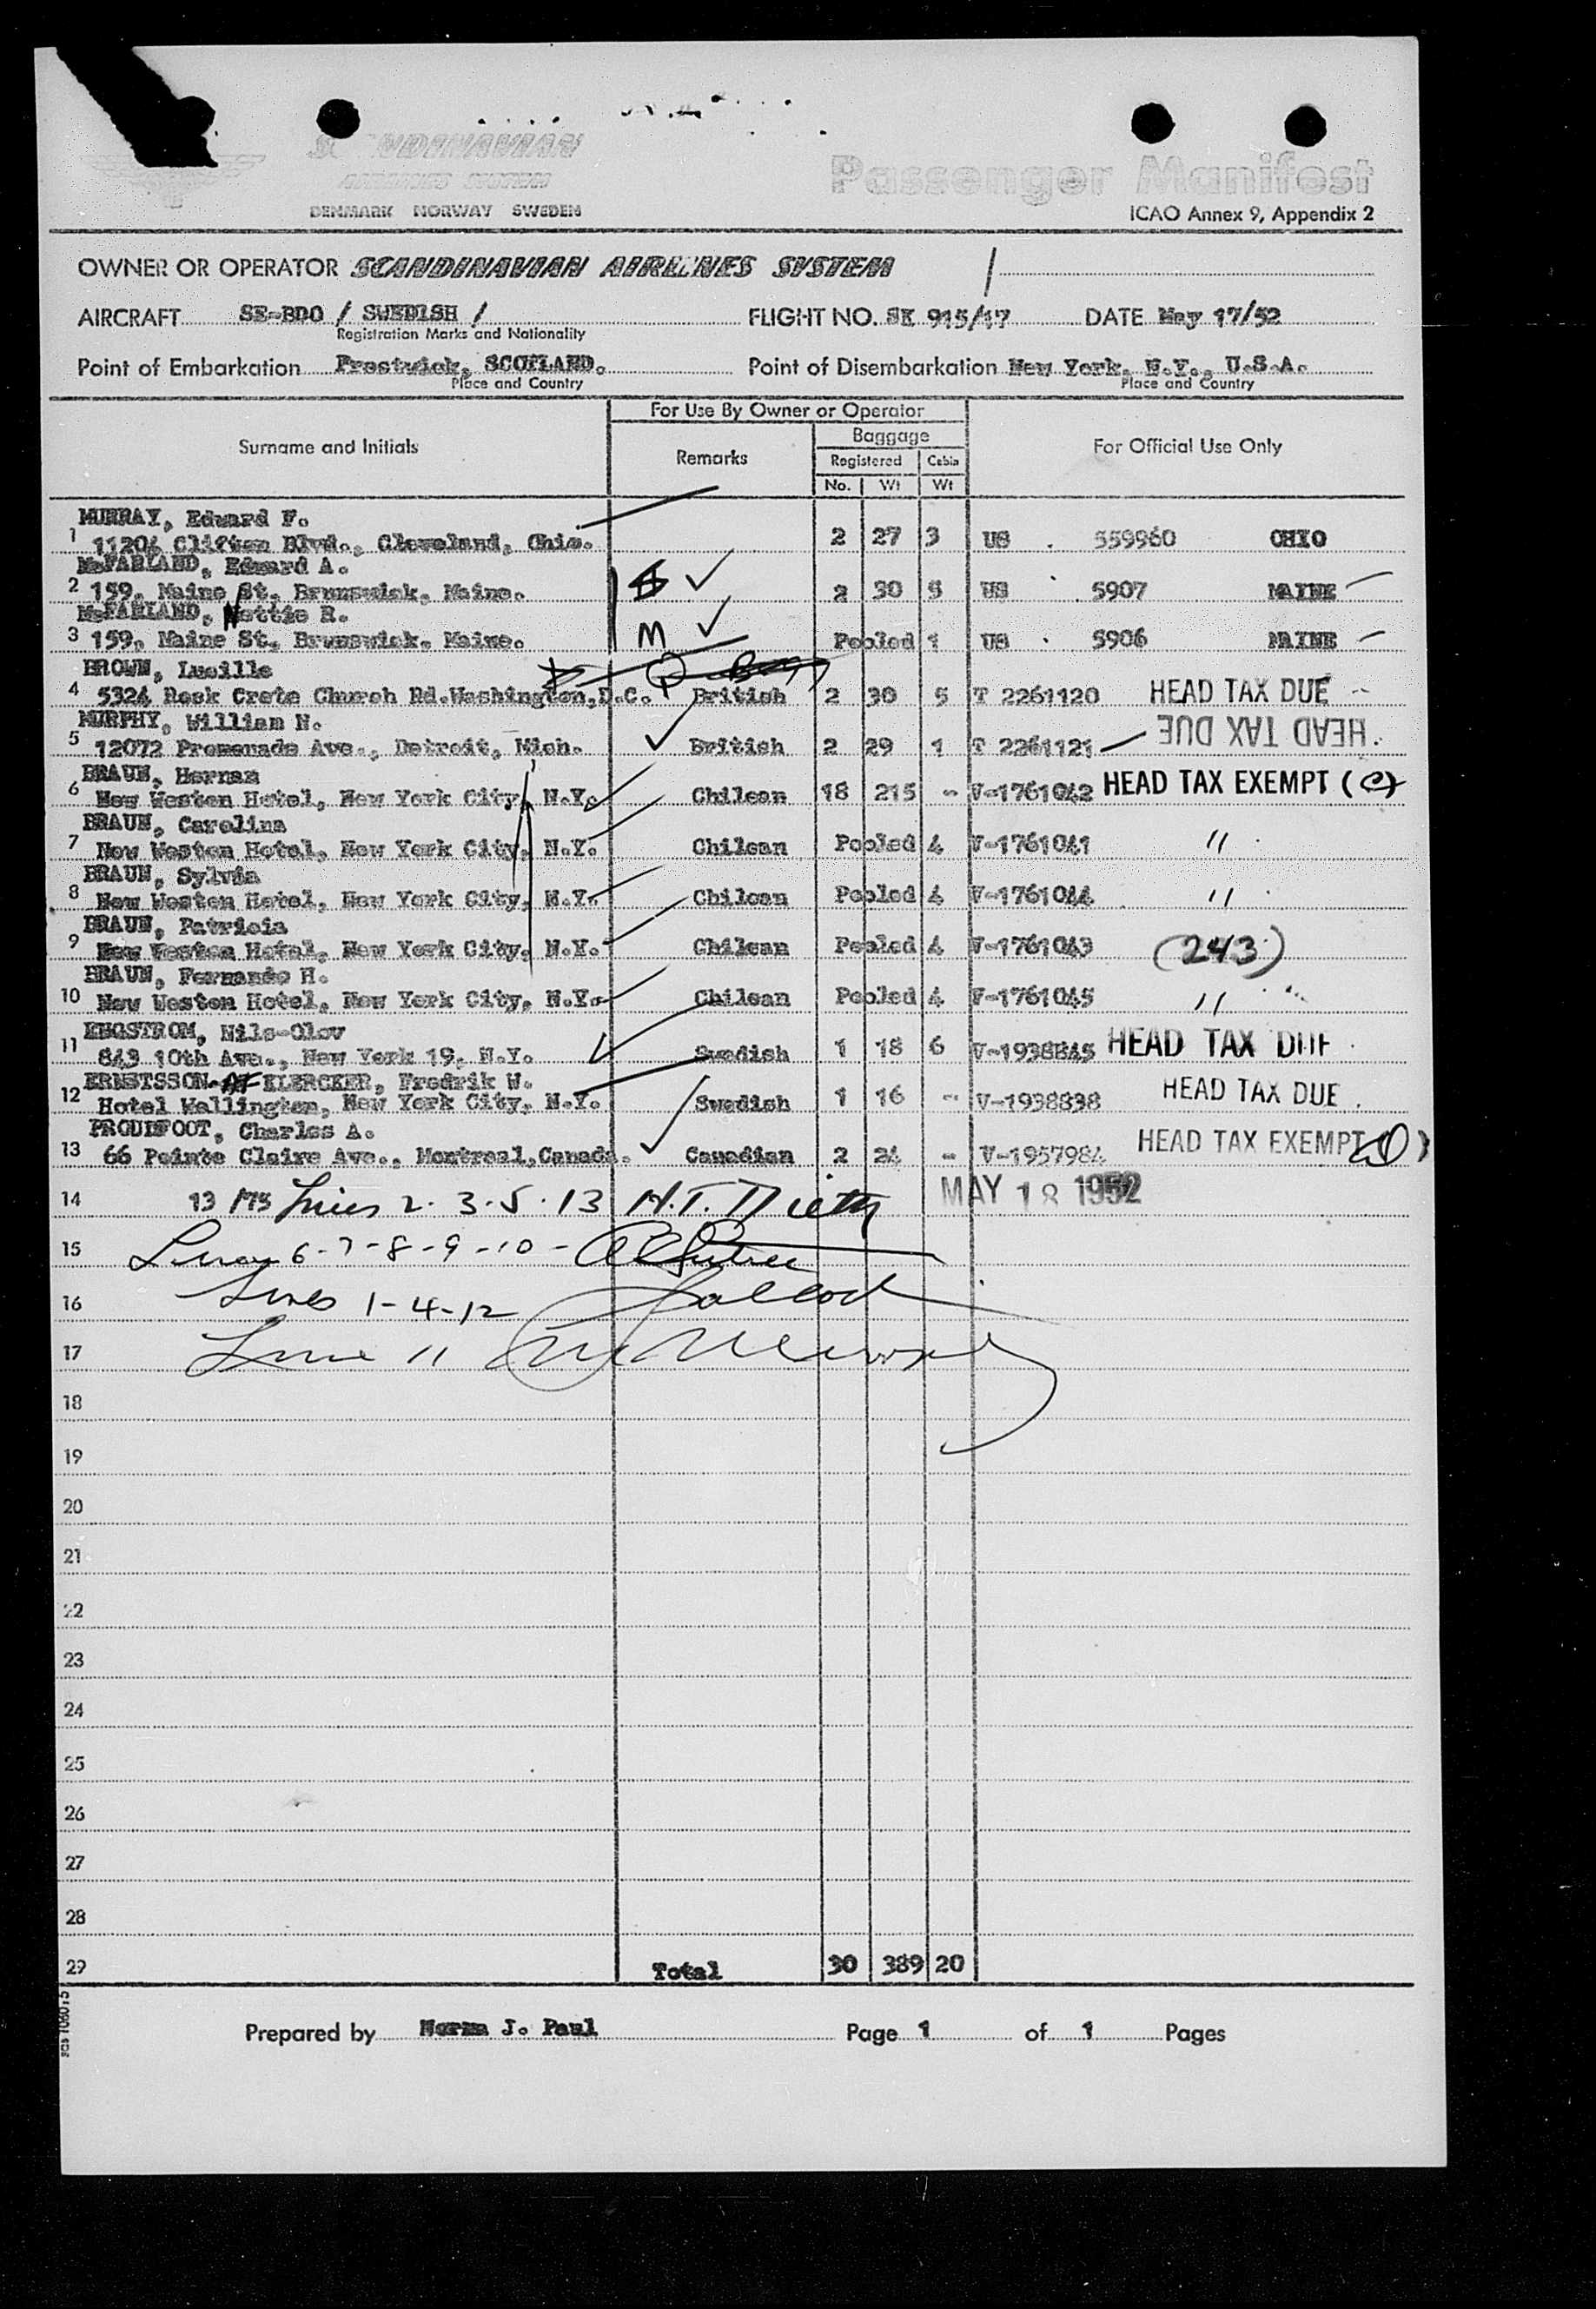 SCANDINAVIAN
AIRLINES SYSTEM
DENMARK NORWAY SWEDEN
Passenger Manifest
ICAO Annex 9, Appendix 2
OWNER OR OPERATOR SCANDINAVIAN AIRLINES SYSTEM
AIRCRAFT SE-BDO / SWEDISH / FLIGHT NO. SK 915/17 DATE May 17/52
Registration Marks and Nationality
Point of Embarkation Prestwick, SCOTLAND. Point of Disembarkation New York, N.Y., U.S.A.
Place and Country Place and Country
For Use By Owner or Operator
Surname and Initials Remarks Baggage For Official Use Only
Registered Cabin
No. Wt Wt
MURRAY, Edward F.
1 11204 Clifton Blvd., Cleveland, Ohio. 2 27 3 US . 559960 OHIO
McFARLAND, Edward A.
2 159, Maine St. Brunswick, Maine. 2 30 5 US . 5907 MAINE
McFARLAND, Nettie R.
3 159, Maine St. Brunswick, Maine. M Pooled 1 US . 5906 MAINE
BROWN, Lucille
4 5324 Rock Crete Church Rd.Washington,D.C. British 2 30 5 T 2261120 HEAD TAX DUE
MURPHY, William N.
5 12072 Promenade Ave., Detroit, Mich. British 2 29 1 T 2261121 HEAD TAX DUE
BRAUN, Hernan
6 New Weston Hotel, New York City, N.Y. Chilean 18 215 - V-1761042 HEAD TAX EXEMPT (e)
BRAUN, Carolina
7 New Weston Hotel, New York City, N.Y. Chilean Pooled 4 V-1761041 "
BRAUN, Sylvia
8 New Weston Hotel, New York City, N.Y. Chilean Pooled 4 V-1761044 "
BRAUN, Patricia
9 New Weston Hotel, New York City, N.Y. Chilean Pooled 4 V-1761043 (243)
BRAUN, Fernando H.
10 New Weston Hotel, New York City, N.Y. Chilean Pooled 4 V-1761045 "
ENGSTROM, Nils-Olov
11 843 10th Ave., New York 19, N.Y. Swedish 1 18 6 V-1938845 HEAD TAX DUE
ERNSTSSON-AF KLERCKER, Fredrik W.
12 Hotel Wellington, New York City, N.Y. Swedish 1 16 - V-1938838 HEAD TAX DUE
PROUDFOOT, Charles A.
13 66 Pointe Claire Ave., Montreal,Canada. Canadian 2 24 - V-1957984 HEAD TAX EXEMPT
14 13 Lines 2-3-5-13 H.T. MAY 18 1952
15 Lines 6-7-8-9-10-
16 Lines 1-4-12
17 Line 11
18
19
20
21
22
23
24
25
26
27
28
29 Total 30 389 20
Prepared by Norma J. Paul Page 1 of 1 Pages